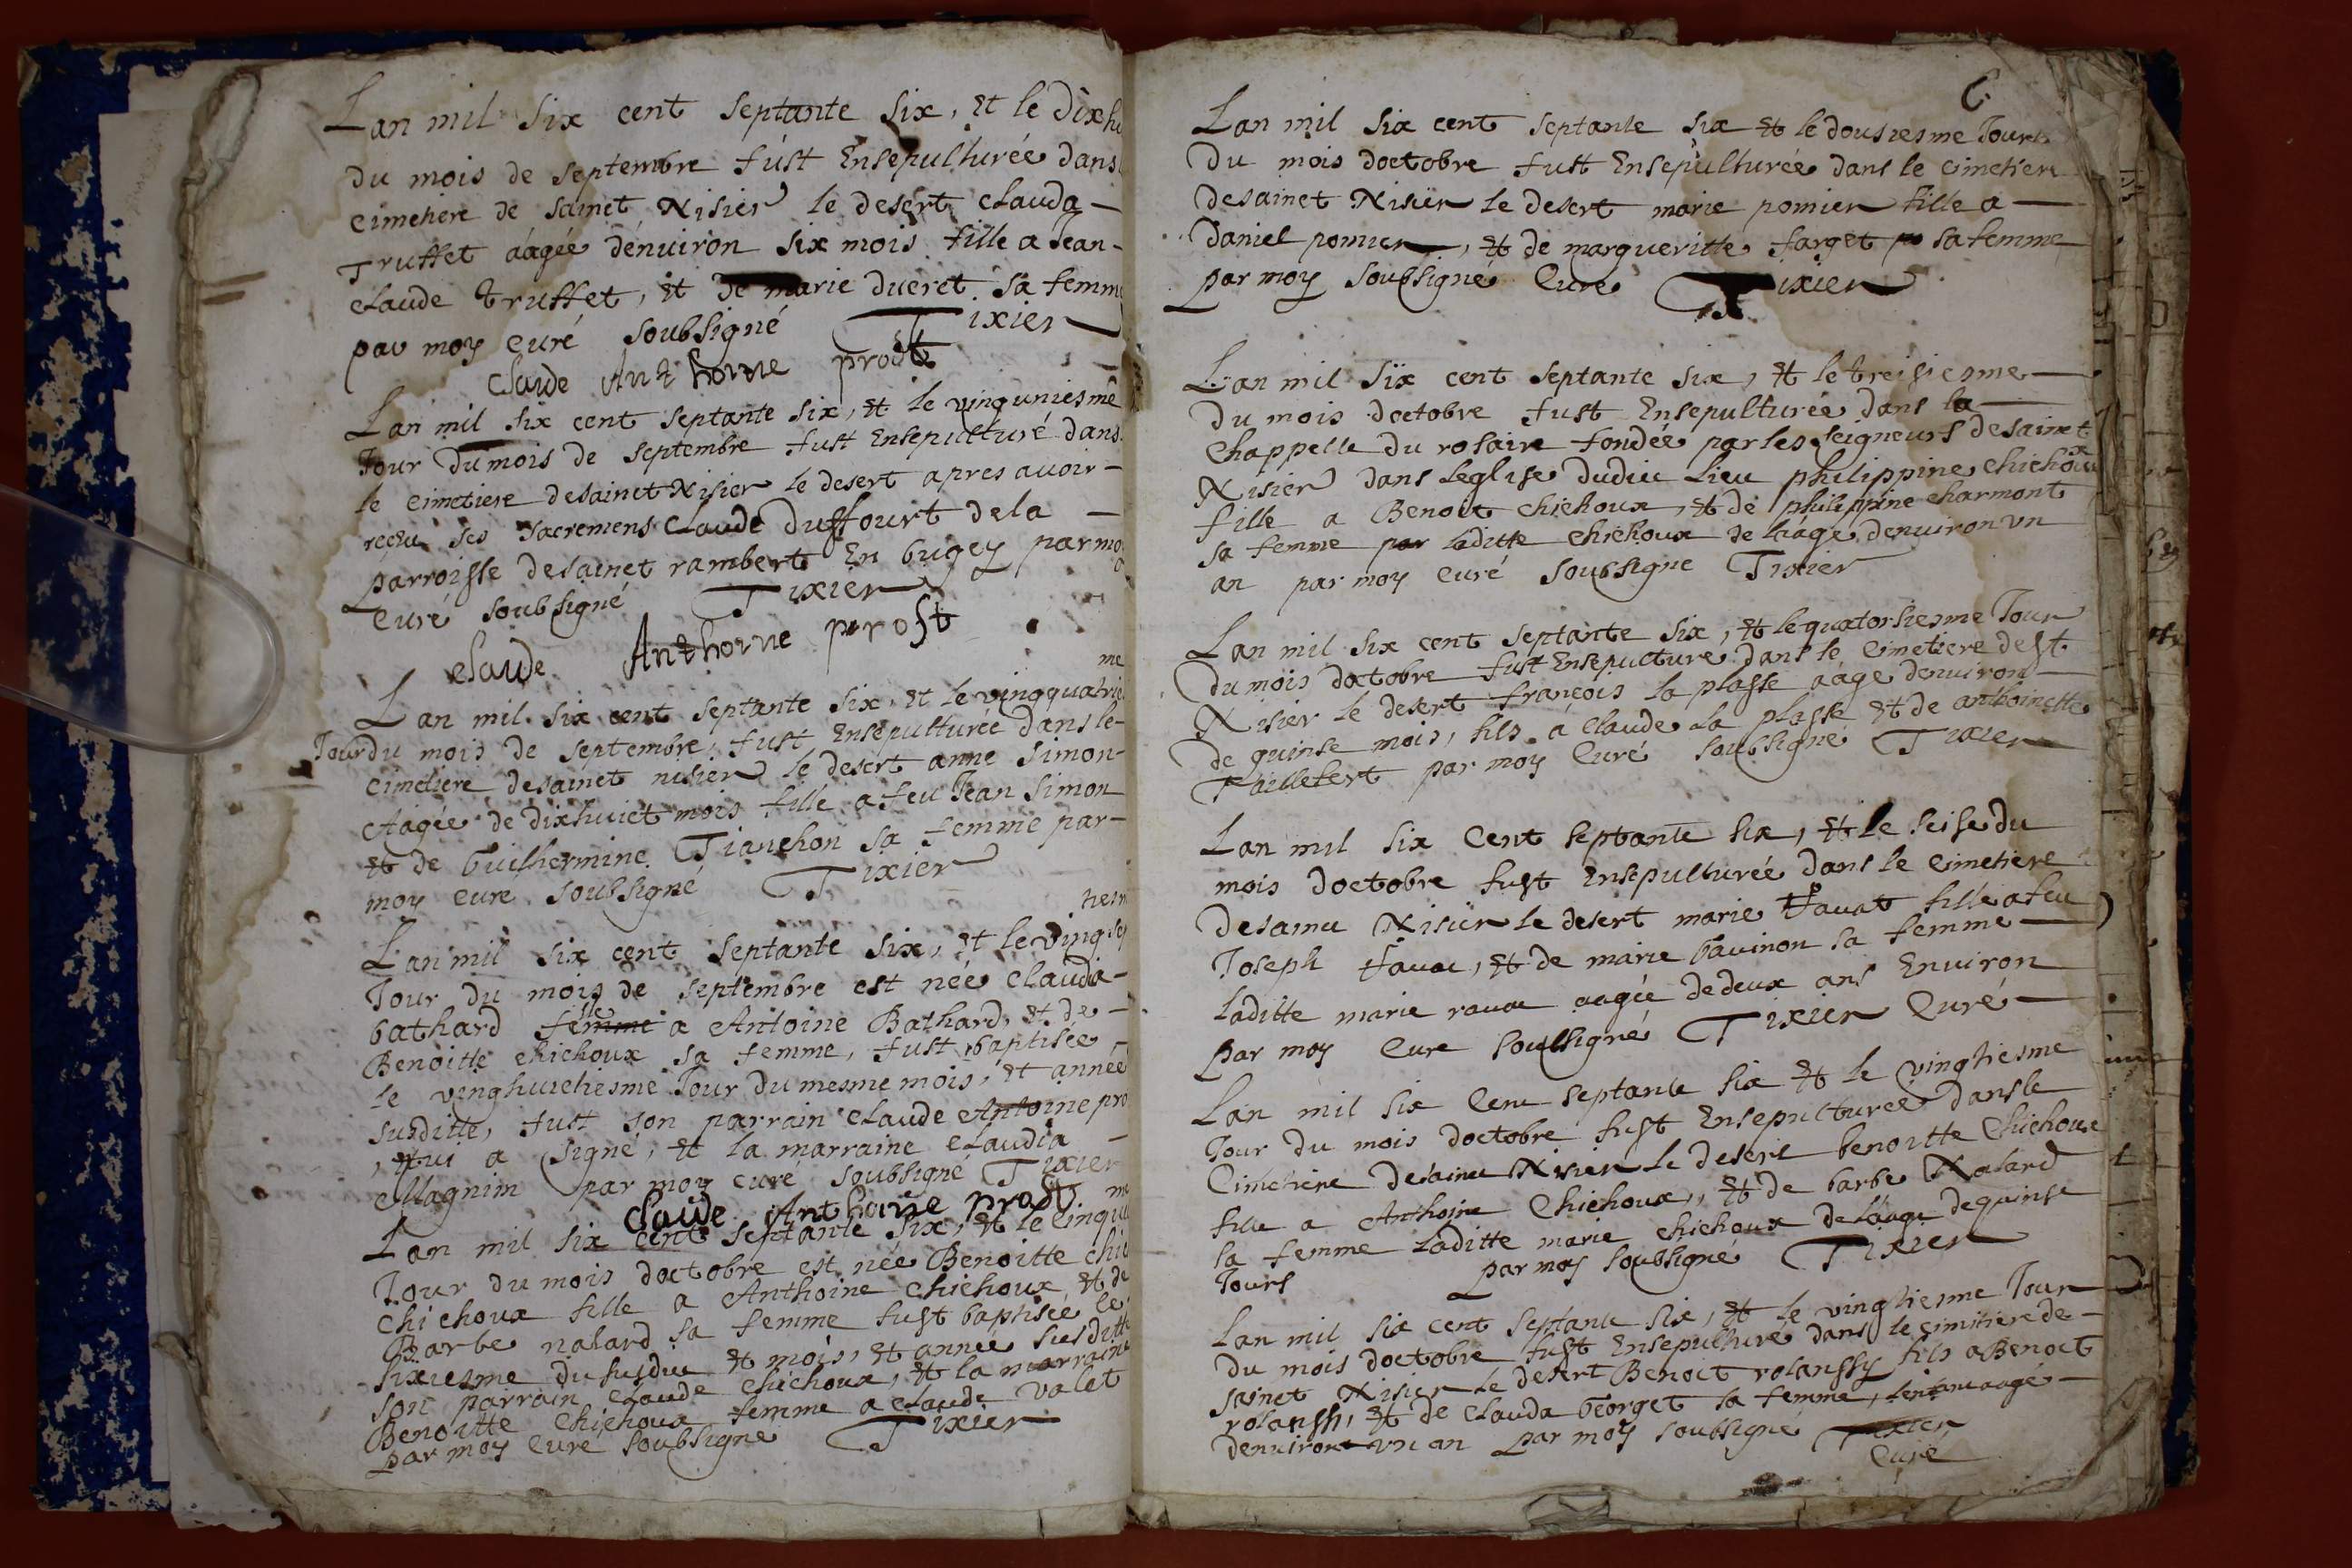 Lan mil six cent septante six, et le dixhu
du mois de septembre fust Ensepulturée dans
cimetiere de sainct Nisier le desert clauda
Truffet aagée dénuiron six mois fille a Jean
claude truffet, et de marie ducret sa femme
par moy curé soubsigné Tixier
Claude Anthoine prost
Lan mil six cent septante six, et le vinguniesme
Jour du mois de septembre fust Ensepulturé dans
le cimetiere desainct Nisier le desert apres auoir
receu ses sacremens Claude Duffourt dela
parroisse desainct rambert En bugey par moy
Curé soubsigné Tixier
Claude Anthoine prost
me
Lan mil six cent septante six, et le vingquatrie
Jour du mois de septembre, fust Ensepulturee dans le
cimetiere desainct nisier le desert anne simon
Aagée de dixhuict mois fille a feu Jean Simon
et de Guilhermine Tianchon sa femme par
moy cure soubsigné Tixier
tiesm
Lan mil six cent septante six, et le ving sep
Jour du mois de septembre est née Claudia
bathard femme lle a Antoine Bathard, et de
Benoitte chichoux sa femme, fust baptisée
le vinghuictiesme Jour du mesme mois, et année
susditte, fust son parrain Claude Antoine pro
, qui a signé, et la marraine Claudia
Magnim par moy curé soubsigné Tixier
Claude Anthoine prost
me
Lan mil six cent septante six, et le cinqui
Jour du mois doctobre est née Benoitte chic
chichoux fille a Anthoine chichoux, et de
Barbe nalard sa femme fust baptisée le
sixiesme du susduc et mois, et année susditte
son parrain Claude chichoux, et la marraine
Benoitte chichoux femme a claude valet
par moy Cure soubsigne Tixier
C
Lan mil six cent septante six et le dousiesme Jour
du mois doctobre fust Ensepulturée dans le cimetiere
desainct Nisier le desert marie pomier fille a
Daniel pomier, et de margueritte farget sa femme
par moy soubsigné Cure Tixier
Lan mil six cent septante six, et le treisiesme
du mois doctobre fust Ensepulturée dans la
chappelle du rosaire fondée par les seigneurs desainct
Nisier dans leglise dudict lieu philippine chichoux
fille a Benoit chichoux, et de philippine charmont
sa femme par laditte chichoux de láage denuiron vn
an par moy curé soubsigne Tixier
Lan mil six cent septante six, et le quatorsiesme Jour
du mois doctobre fust Ensepulture dans le Cimetiere de st
Nisier le desert françois la plasse aage denuiron
de quinse mois, fils a claude la plasse et de anthoinette
Taillefert par moy Curé soubsigné Tixier
Lan mil six Cent septante six, et le seise du
mois doctobre fust Ensepulturée dans le cimetiere
desainct Nisier le desert marie fauat fille a feu
Joseph fauat, et de marie Gauinon sa femme
laditte marie rauat aagée de deux ans Enuiron
par moy Cure soubsigné Tixier Curé
Lan mil six Cent septante six et le vingtiesme
Jour du mois doctobre fust Ensepulturée dans le
Cimetiere desainct Nisier le desert benoitte Chichoux
fille a Anthoine Chichoux, et de barbe Nalard
sa femme laditte marie chichoux de láage de quinse
Jours par moy soubsigné Tixier
Lan mil six cent septante six, et le vingtiesme Jour
du mois doctobre fust Ensepulturé dans le cimitiere de
sainct Nisier le desert Benoict rolanssy fils a Benoict
rolanssy, et de clauda Georget sa femme, lenfant aagé
denuiron vn an par moy soubsigné Tixier
Curé